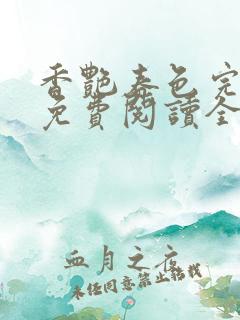 香艷春色完
免費閱讀全
血月之夜
未經同意禁止轉載